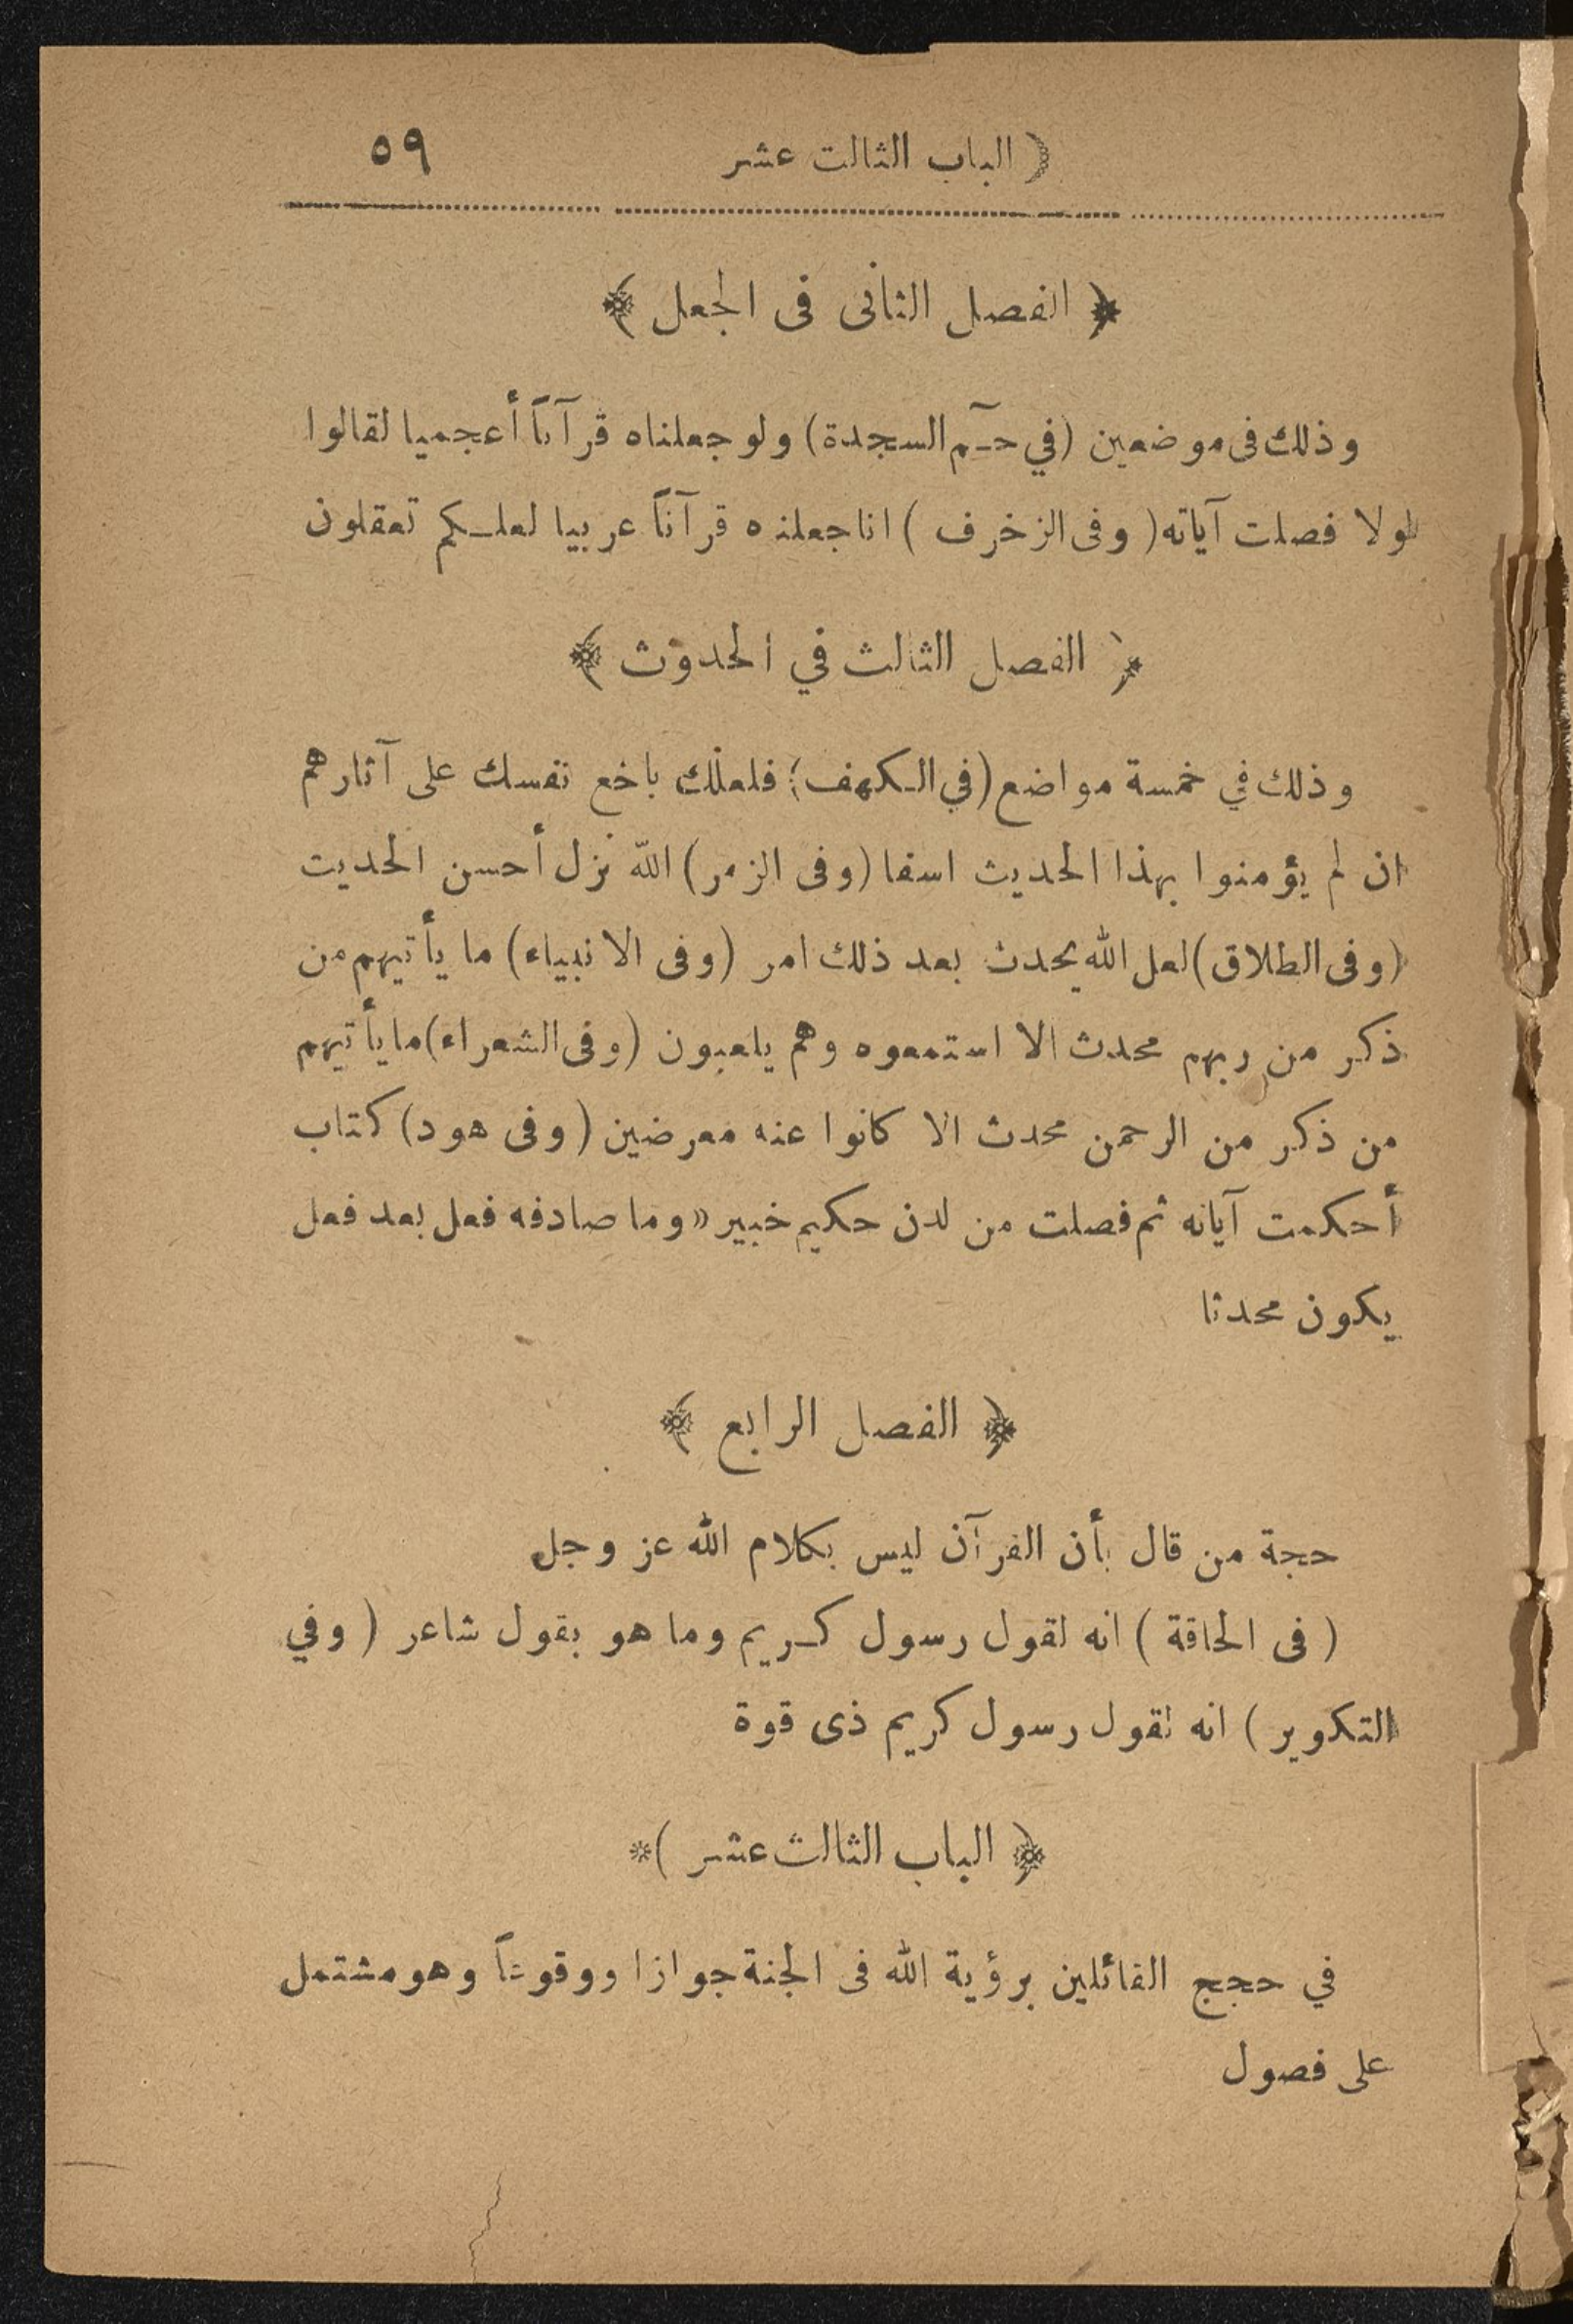 ( الباب الثالث عشر ٥٩
﴿ الفصل الثانى فى الجعل ﴾
وذلك فى موضعين (في حـٓم السجدة) ولو جعلناه قرآناً أعجميا لقالوا
لولا فصلت آياته (وفى الزخرف) انا جعلنه قرآناً عربيا لعلـكم تعقلون
﴿ الفصل الثالث في الحدوث ﴾
وذلك في خمسة مواضع (في الـكهف) فلعلك باخع نفسك على آثارهم
ان لم يؤمنوا بهذا الحديث اسفا (وفى الزمر) الله نزل أحسن الحديث
(وفى الطلاق) لعل الله يحدث بعد ذلك امر (وفى الانبياء) ما يأتيهم من
ذكر من ربهم محدث الا استمعوه وهم يلعبون (وفى الشعراء) ما يأتيهم
من ذكر من الرحمن محدث الا كانوا عنه معرضين (وفى هود) كتاب
أحكمت آياته ثم فصلت من لدن حكيم خبير «وما صادفه فعل بعد فعل
يكون محدثا
﴿ الفصل الرابع ﴾
حجة من قال بأن القرآن ليس بكلام الله عز وجل
( فى الحاقة ) انه لقول رسول كـريم وما هو بقول شاعر ( وفي
التكوير ) انه لقول رسول كريم ذى قوة
﴿ الباب الثالث عشر )*
في حجج القائلين برؤية الله فى الجنة جوازا ووقوعاً وهو مشتمل
على فصول